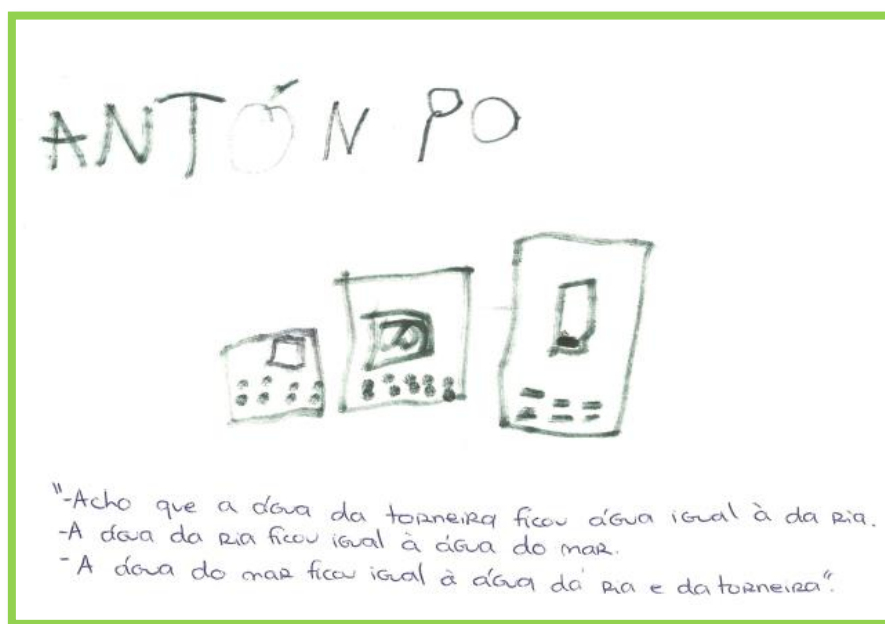 ANTÓN PO
"-Acho que a água da torneira ficou água igual à da ria.
-A água da ria ficou igual à água do mar.
- A água do mar ficou igual à água da ria e da torneira".